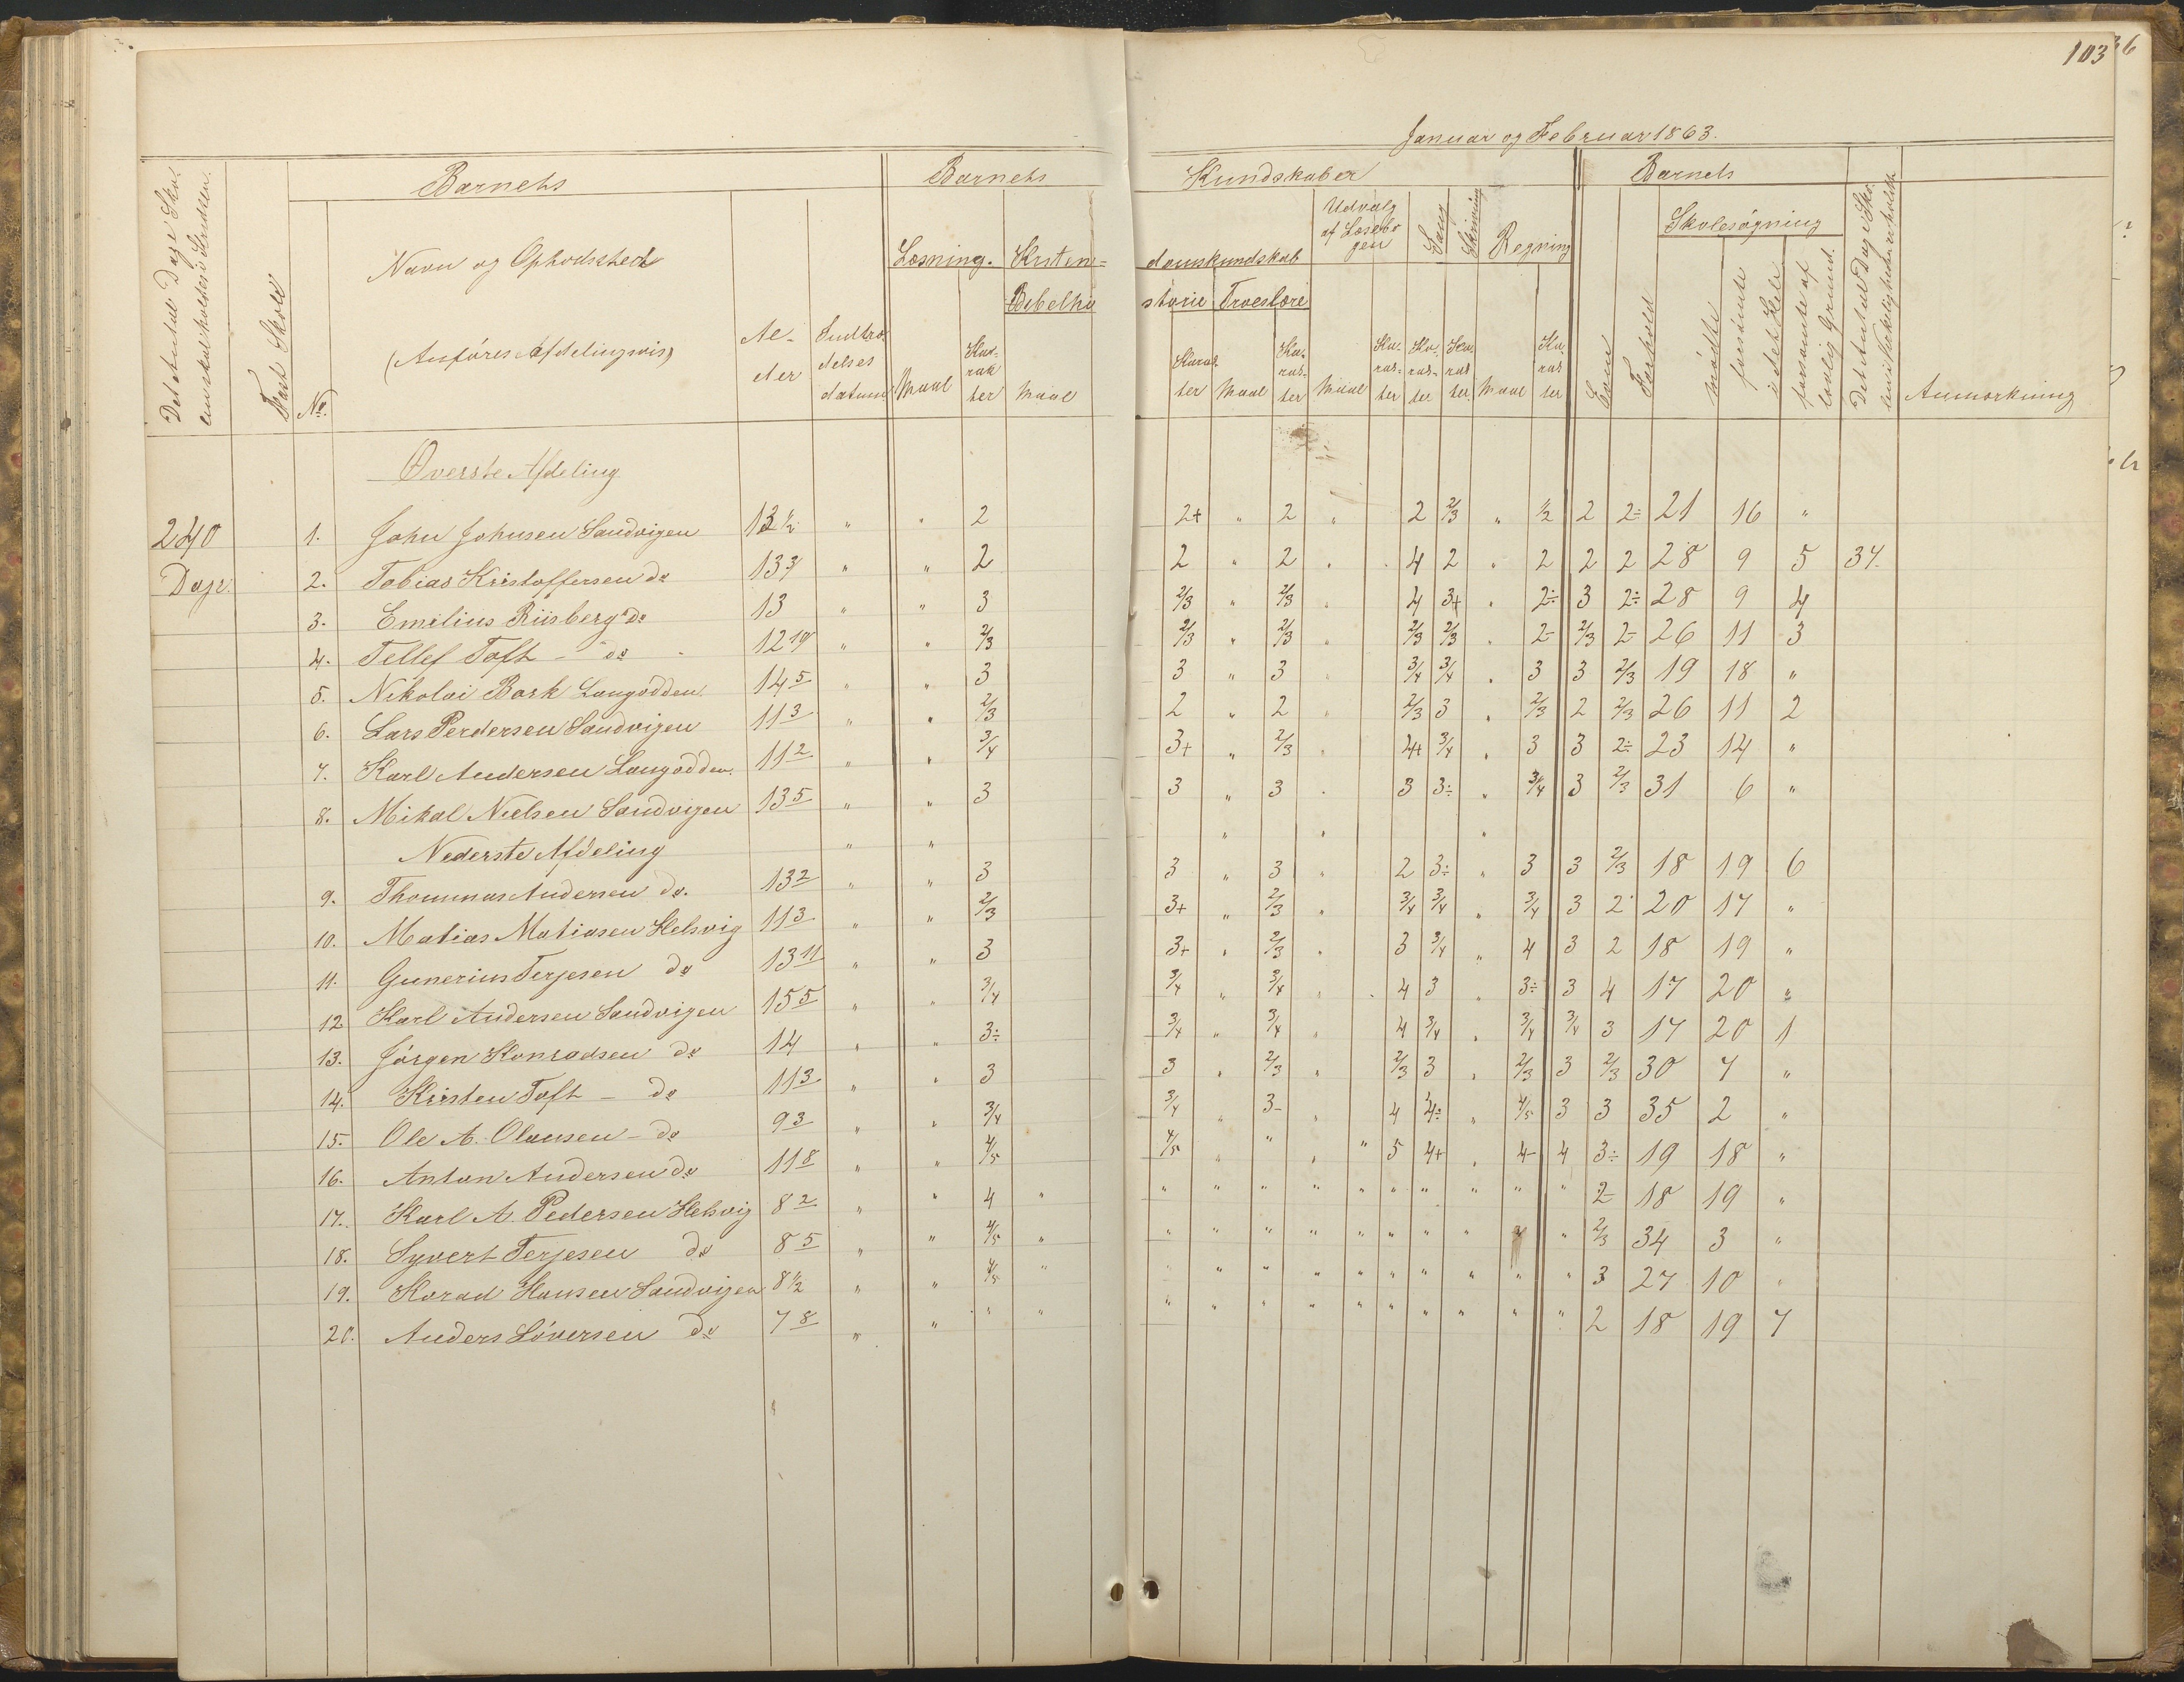 103
Januar og Februar 1863.
Barnets
Barnets
Kundskaber
Barnets
Det Antal Dage Sko-
len skal holdes i Kredsen.
Fast Skole
No.
Navn og Opholdssted
(Anføres afdelingsvis)
Al-
der
Indtræ-
delses
datum
Læsning.
Kristen-
domskundskab
Bibelhi
storie
Troeslære
Udvalg
af Læsebo
gen
Sang
Skrivning
Regning
Skolesøgning
Maal
Karakter
Evne
Forhold
mødte
forsømte
i det Hele
forsømte af
lovlig Grund
Det Antal Dage Sko-
len i Virkeligheden er holdt
Anmærkning
Øverste Afdeling
240 1. John Johnsen Sandvigen 13 ½ " " 2 2+ " 2 " 2 2/3 " ½ 2 2÷ 21 16 "
Dage. 2. Tobias Kristoffersen do 13 3 " " 2 2 " 2 " 4 2 " 2 2 2 28 9 5 37.
3. Emilius Riisberg do 13 " " 3 2/3 " 2/3 " 4 3+ " 2÷ 3 2÷ 28 9 4
4. Tellef Toft - do - 12 " " 2/3 2/3 " 2/3 " 2/3 2/3 " 2- 2/3 2- 26 11 3
5. Nikolai Bark Langodden 14 5 " " 3 3 " 3 " 3/4 3/4 " 3 3 2/3 19 18 "
6. Lars Perdersen Sandvigen 11 3 " " 2/3 2 " 2 " 2/3 3 " 2/3 2 2/3 26 11 2
7. Karl Andersen Langodden. 11 2 " " 3/4 3+ " 2/3 " 4+ 3/4 " 3 3 2÷ 23 14 "
8. Mikal Nielsen Sandvigen 13 5 " " 3 3 " 3 " 3 3÷ " 3/4 3 2/3 31 6 "
Nederste Afdeling " " " " "
9. Thommas Andersen do. 13 2 " " 3 3 " 3 " 2 3÷ " 3 3 2/3 18 19 6
10. Matias Matiasen Helsvig 11 3 " " 2/3 3+ " 2/3 " 3/4 3/4 " 3/4 3 2 20 17 "
11. Gunerius Terjesen do 13 11 " " 3 3+ " 2/3 " 3 3/4 " 4 3 2 18 19 "
12 Karl Andersen Sandvigen 15 5 " " 3/4 3/4 " 3/4 " 4 3 " 3÷ 3 4 17 20 "
13. Jørgen Konradsen do 14 " " 3÷ 3/4 " 3/4 " 4 3/4 " 3/4 3/4 3 17 20 1
14. Kristen Toft - do 11 3 " " 3 3 " 2/3 " 2/3 3 " 2/3 3 2/3 30 7 "
15. Ole A. Olausen - do 9 3 " " 3/4 3/4 " 3- " 4 4÷ " 4/5 3 3 35 2 "
16. Anton Andersen do 11 8 " " 4/5 4/5 " " " " 5 4+ " 4- 4 3÷ 19 18 "
17. Karl A. Pedersen Helsvig 8 2 " " 4 " " " " " " " " " " " 2- 18 19 "
18. Syvert Terjesen do 8 5 " " 4/5 " " " " " " " " " " 2/3 34 3 "
19. Korad Hansen Sandvigen 8 ½ " " 4/5 " " " " " " " " " " " 3 27 10 "
20. Anders Løversen do 7 8 " " " " " " " " " " " " " " 2 18 19 7